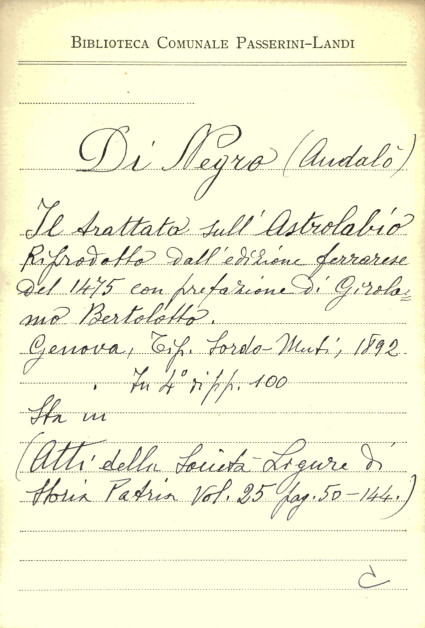 BIBLIOTECA COMUNALE PASSERINI-LANDI
Di Negro (Andalò)
Il trattato sull'Astrolabio
Riprodotto dall'edizione ferrarese
del 1475 con prefazione di Girola=
mo Bertolotto.
Genova, Tip. Sordo-Muti, 1892
In 4° di pp. 100
Sta in
(Atti della Società Ligure di
Storia Patria Vol. 25 pag. 50-144.)
C